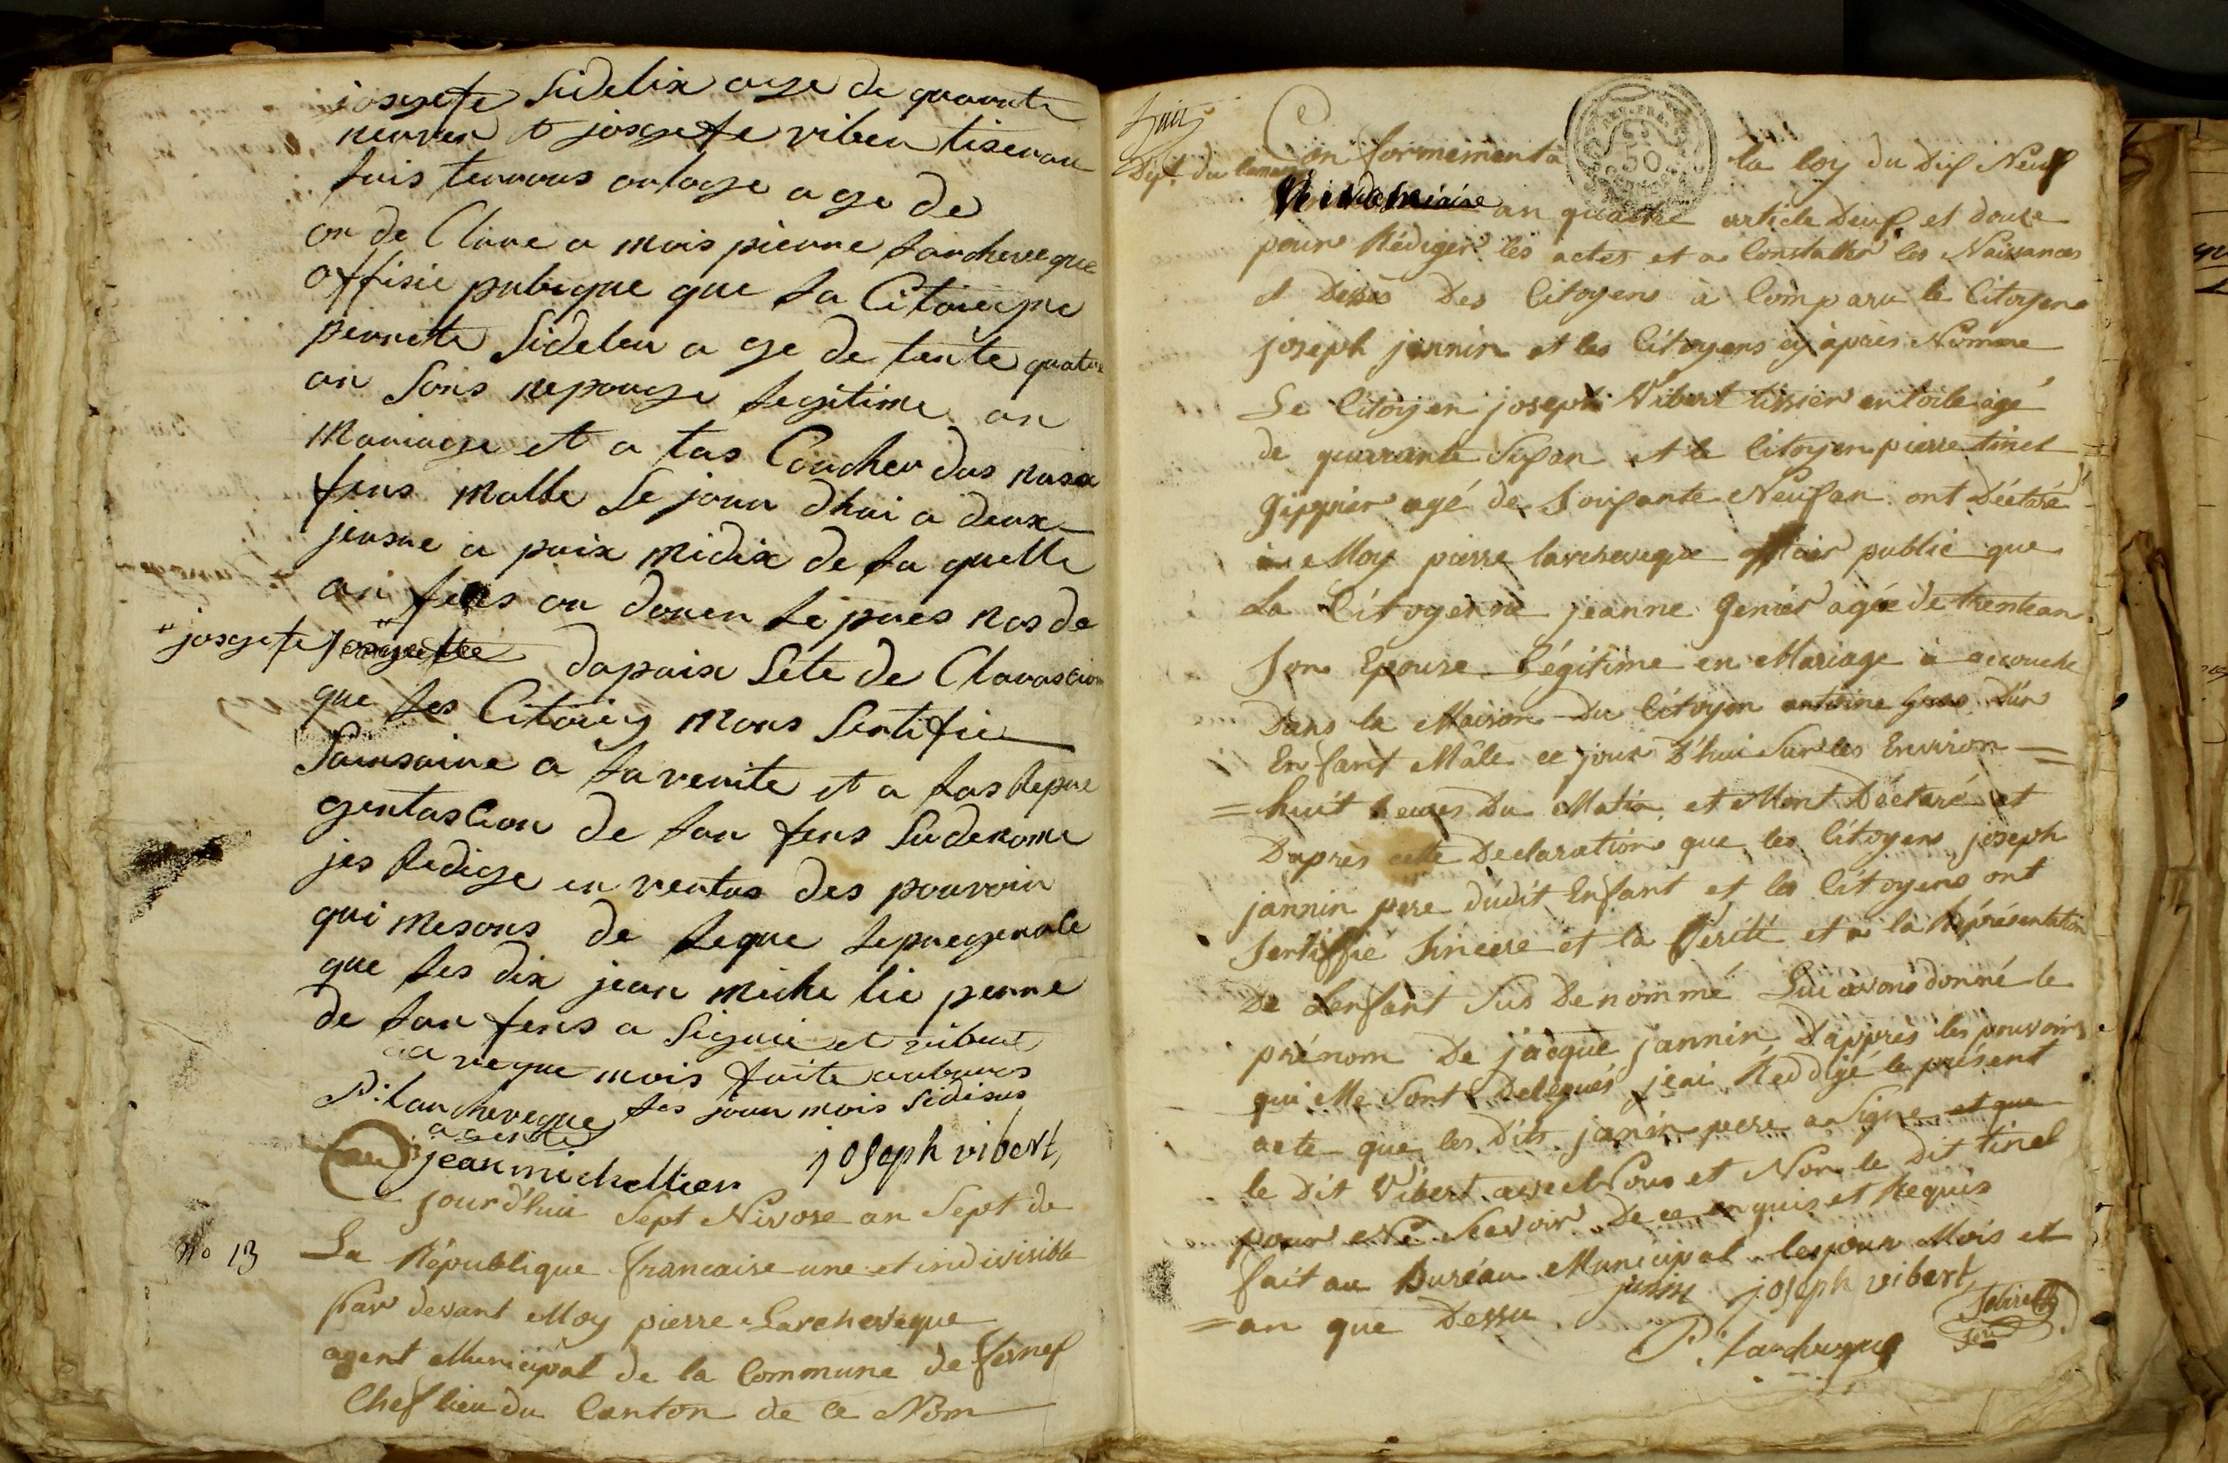 josepte Sidelix age de quarante
neuven et josepte viben tiseran
tuis tennous on loge age de
on de Clare a mois pierre Larcheveque
offisie pubigue que la Citoiegne
pernete Sideleu a ge de tente quatre
an Sons nepouge legitime an
Mariage et a tas Coucher das nasa
fens malle Le jour dhui a deux
jeusne a puix midix de la quelle
an fens on donen le pres nos de
"josepte
dapuix Sete de Clarascion
que les Citoieg mons Sertifie
Sainsaire a la verite et a las Repre
gentascion de san fens Sudenome
jes Redige en vertus des pouvoir
qui mesons de legue le pregenale
que les dix jean miche lie perre
de san fens a Signie et vibent
aveque mois faite au bures
les jour mois Sidisus
P: Larcheveque
agente
jean michellier joseph vibert,
au
jourd'hui Sept Nivose an Sept de
no 13 La République francaise une et indivisible
Par devant Moy pierre Larcheveque
agent Municipal de la Commune de fernex
Chef lieu du Canton de ce Nom
Dept. du Leman
Conformement a la loy du Dix Neuf
Vindemiaire an quatre article Deux et douze
pour Rédiger les actes et a Constatter les Naissances
et Décès Des Citoyens à Comparu le Citoyen
joseph jannin et les Citoyens cy après Nomme
Le Citoyen joseph Vibert tissier en toile agé
de quarrante Six an et le Citoyen pierre tinel
Gippier agé de Soixante Neuf an ont Déclaré
a Moy pierre larcheveque officier public que
La Citoyenne jeanne Genier agée de trente an
Son Epouse Légitime en Mariage à accouche
Dans la Maison Du Citoyen antoine Gros D'un
Enfant Mâle ce jour D'hui Sur les Environ =
= huit heures Du Matin, et Mont Déclaré et
Daprès cette Declaration que les Citoyens joseph
jannin pere dudit Enfant et les Citoyens ont
Sertiffié Sincere et la Verité et a la Représentation
De Lenfant Sus Denommé Lui avons donné le
prénom De jacque jannin D'apprès les pouvoirs
qui Me Sont Delegués jeai Réddigé le présent
acte que les Dits janin pere a Signe et que
le Dit Vibert avec Nous et Non le Dit tinel
pour Ne Scavoir De ce enquis et Requis
fait au Buréau Municipal les jour Mois et
= an que Dessu janin joseph vibert,
P: Larcheveque